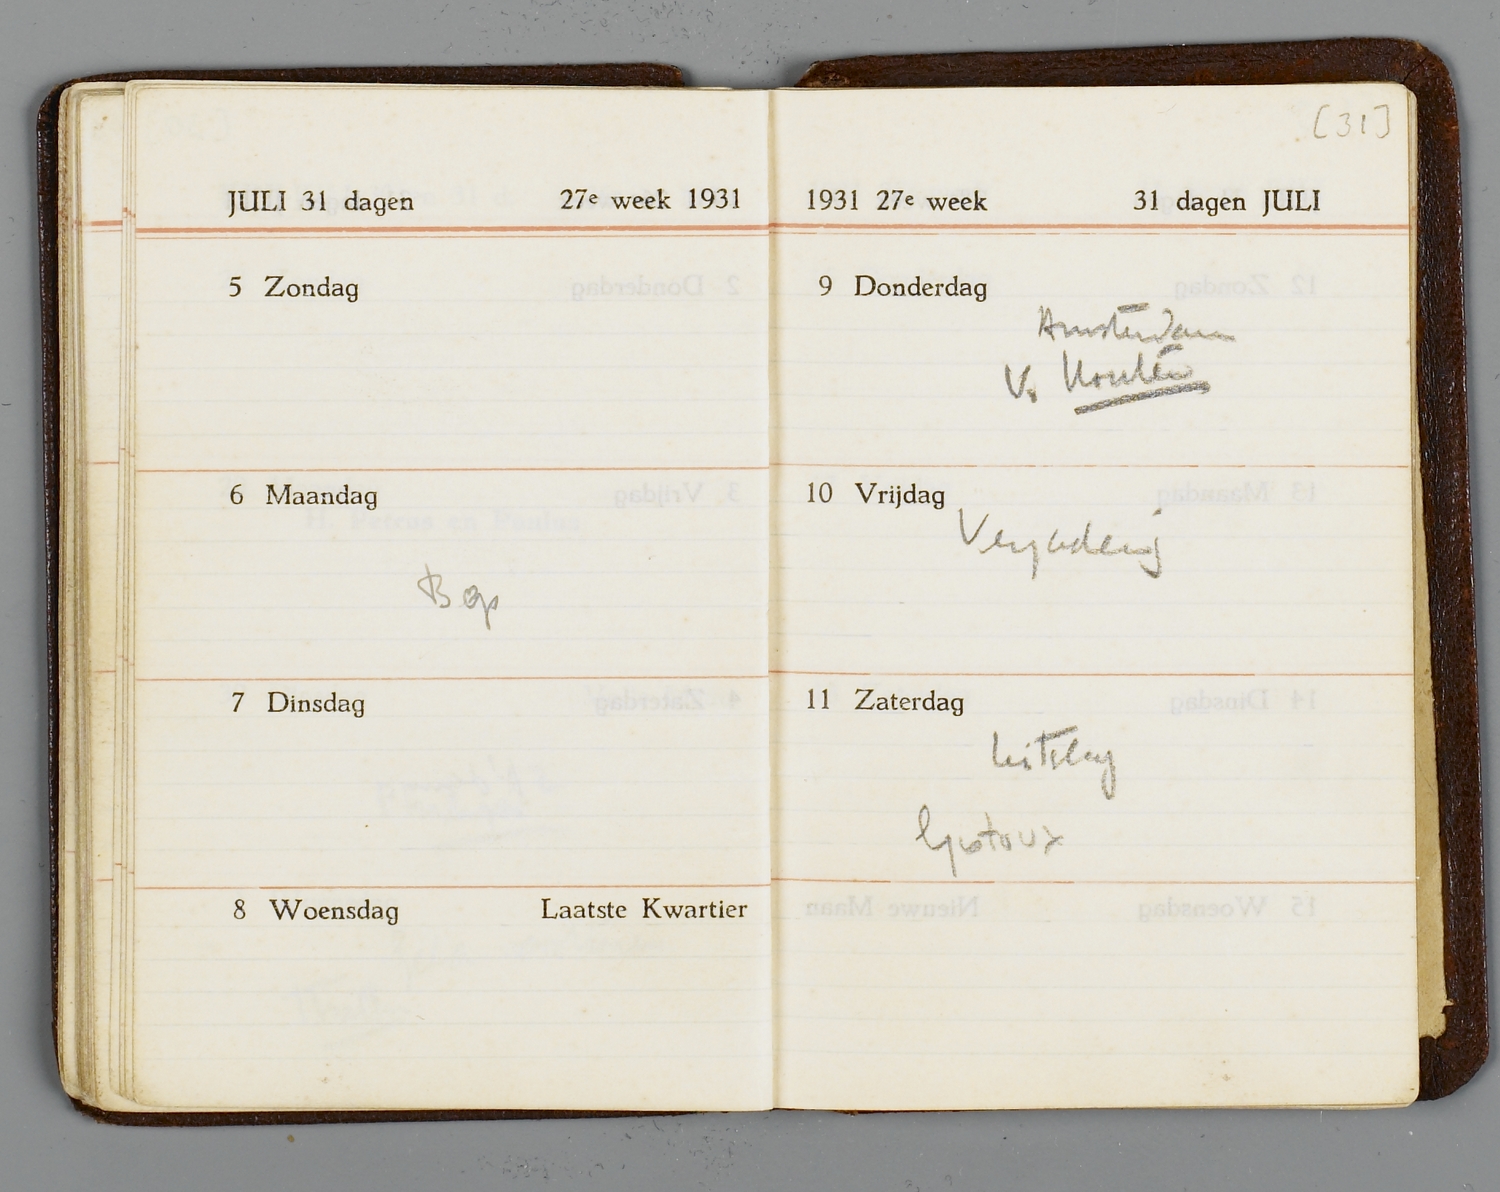 JULI 31 dagen 27e week 1931
5 Zondag
6 Maandag
7 Dinsdag
8 Woensdag Laatste Kwartier
[31]
1931 27e week 31 dagen JULI
9 Donderdag
Amsterdam
V. Houten
10 Vrijdag
Vergadering
11 Zaterdag